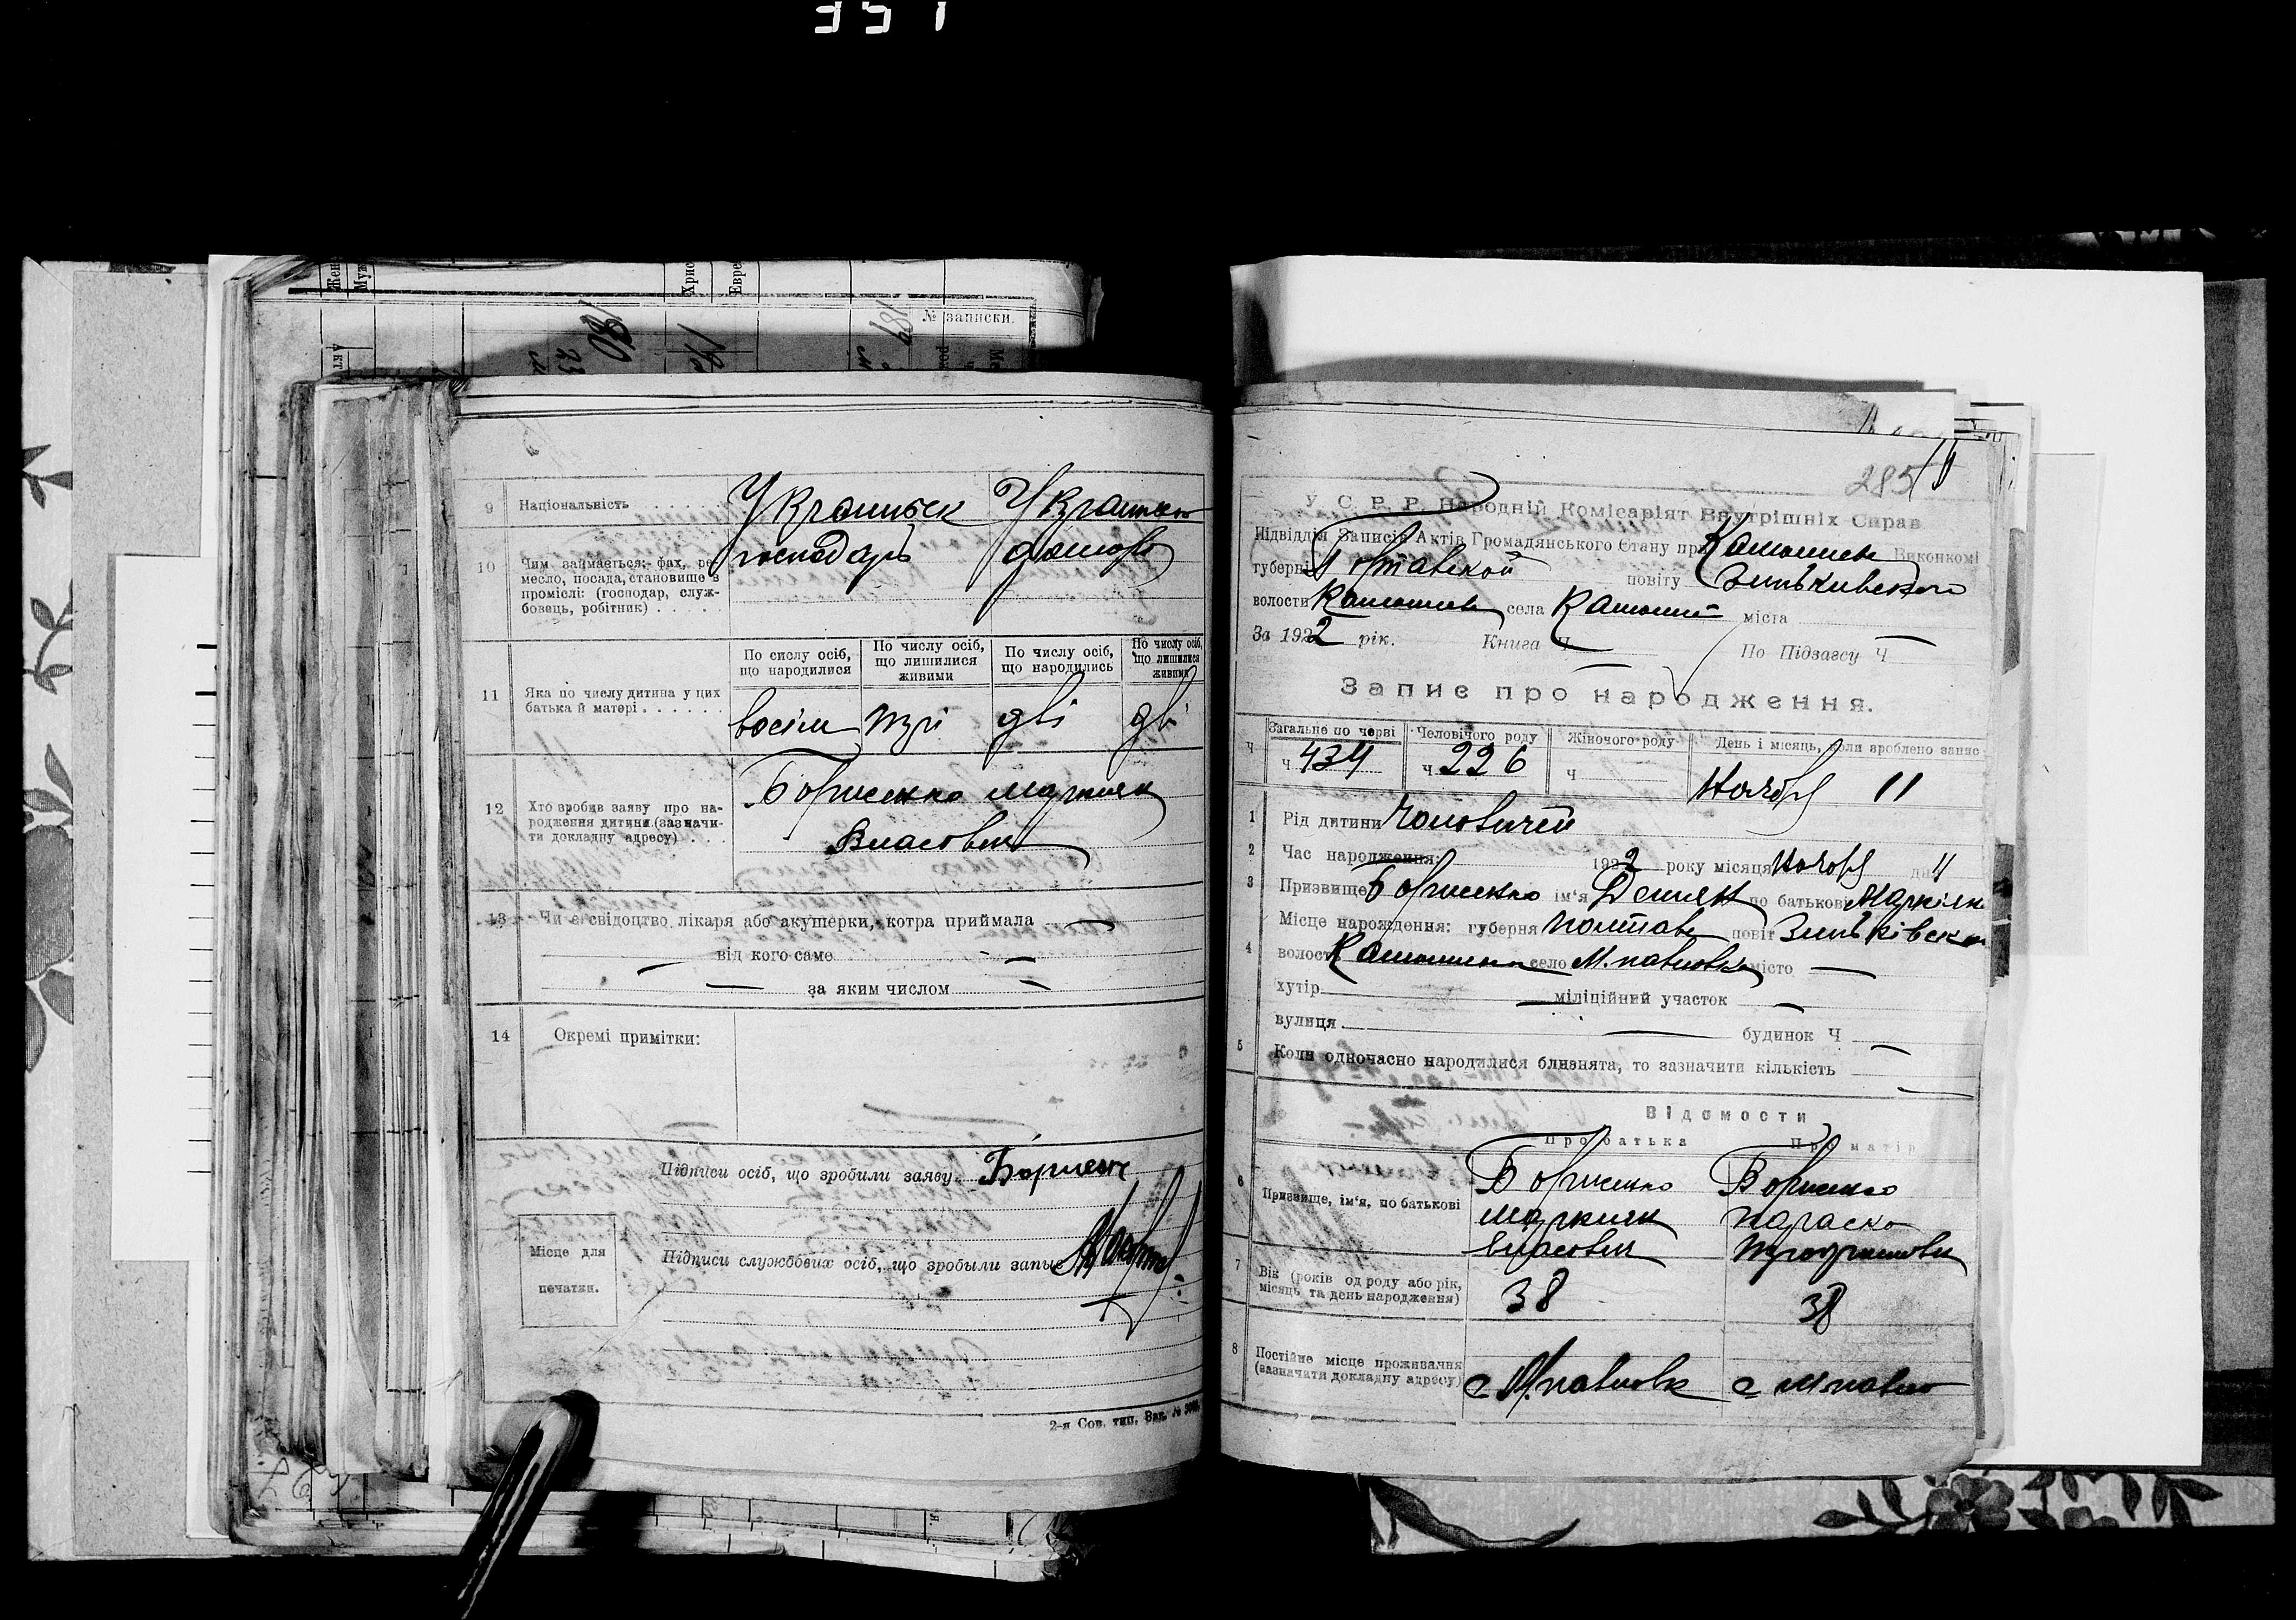 351
Жен
Муж
Хрис
Евре
№ записки.
180
189
9 Національність Украинск Украинск
10 Чим займається:- фах, ре-
месло, посада, становище в
промислі: (господар, служ-
бовець, робітник)
господарь домов
11 Яка по числу дитина у цих
батька й матері
По сислу осіб,
що народилися
По числу осіб,
що лишилися
живими
По числу осіб,
що народились
По числу осіб,
що лишилися
живими
восім три дві дві
12 Хто зробив заяву про на-
родження дитини (зазначи-
ти докладну адресу)
Борисенко Маркиян
Власович
13 Чи є свідоцтво лікаря або акушерки, котра приймала —
— від кого саме —
— за яким числом —
14 Окремі примітки:
Підписи осіб, що зробили заяву Борисен
Місце для
печатки.
Підписи службових осіб, що зробыли запыс
2-я Сов. тип. Зак. №
285
У. С. Р. Р. Народній Комісаріят Внутрішніх Справ
Підвідділ Записів Актів Громадянського Стану при Камышев Виконкомі
губерні Полтавской повіту Зиньківского
волости Камышев села Камыши міста —
За 1922 рік. Книга Ч — По Підзагсу Ч —
Запис про народження.
Ч Загальне по черві Человічого роду Жіночого роду День і місяць, коли зроблено запис
ч 434 ч 226 ч — Ноября 11
1 Рід дитини Чоловичей
2 Час народження: 1922 року місяця Ноября дн 11
3 Призвище Борисенко ім'я Демян по батькові Маркіян
4 Місце народження: губерня Полтав повіт Зиньківск
волость Камышин село М. павловка місто —
хутір — міліційний участок —
вулиця — будинок Ч —
5 Коли одночасно народилися близнята, то зазначити кількість —
Відомости
Про батька Про матір
6 Призвище, ім'я, по батькові
Борисенко Борисенко
Маркиян Параско
Власович Трофимовн
7 Вік (років од роду або рік,
місяць та день народження)
38 38
8 Постійне місце проживання
(зазначати докладну адресу)
с М. павловк с М павло